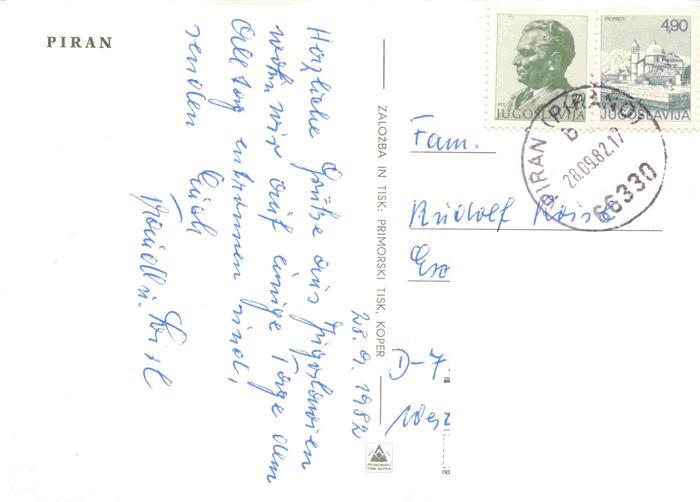 PIRAN
Herzliche Grüße aus Jugoslawien
wohin wir auf einige Tage dem
Alltag entronnen sind,
senden Euch
28.9.1982
ZALOŽBA IN TISK: PRIMORSKI TISK, KOPER
JUGOSLAVIJA
4,90
JUGOSLAVIJA
PIRAN (PIRANO)
b
28.09.82.17
66330
Fam.
Rudolf
D-7